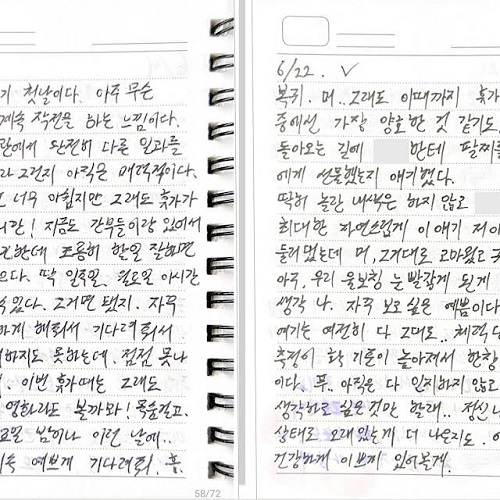 기 첫날이다. 아주 무슨
계속 작전을 하는 느낌이다.
관에서 완전히 다른 일과를
라 그런지 아직은 매력적이다.
너무 아쉽지만 그래도 휴가가
니깐! 지금도 간부들이랑 있어서
한데 조용히 할일 잘하면
딱 일주일, 월요일 아시간
있다. 그거면 됐지. 자꾸
하게 해줘서 기다려줘서.
하지도 못하는데. 점점 못나
이번 휴가때는 그래도
영화라도 볼까봐! 목숨걸고.
밤이나 이런 날에..
예쁘게 기다려줘, 흥.
58/72
6/22. ✓
복귀. 머.. 그래도 이때까지 휴가
중에선 가장 양호한 것 같기도
돌아오는 길에 한테 팔찌를
에게 선물했는지 얘기했다.
딱히 놀란 내색은 하지 않고
최대한 자연스럽게 이 얘기 저
둘러 댔는데 머, 그거대로 고마웠고
아주, 우리 울보칭 눈 빨갛게 된게
생각 나. 자꾸 보고 싶은 예쁨이다
여기는 여전히 다 그대로.. 체력
측정이 학 기준이 높아져서 한창
이다. 푸.. 아직은 다 잊지하지 않고
생각하고 싶은 것만 할래..
상태로 오래있는게 더 나은지도.
건강하게 이쁘게 있어볼게.